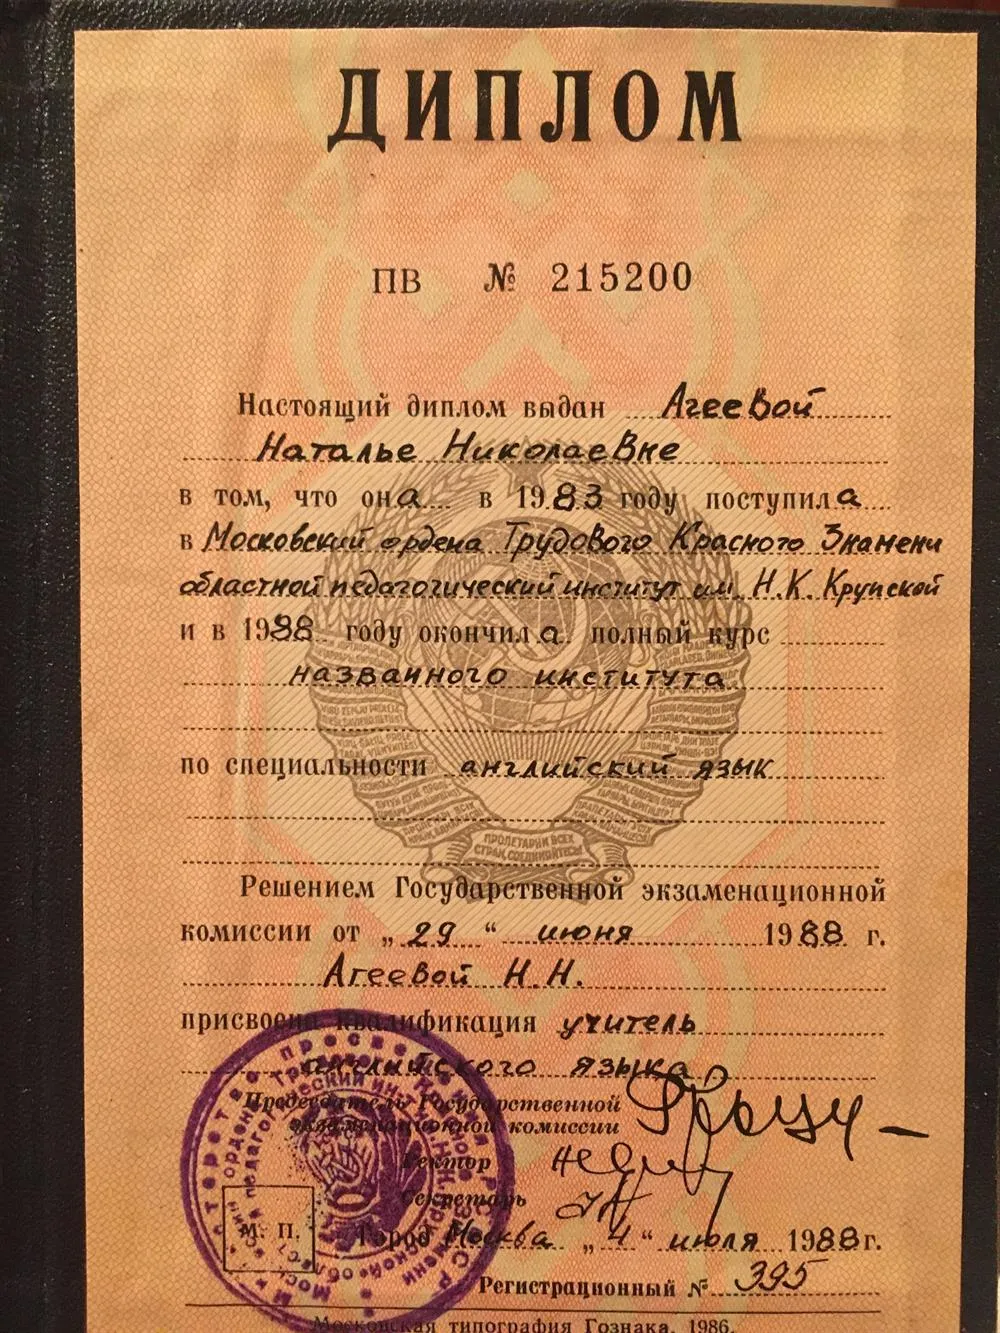 ДИПЛОМ
ПВ № 215200
Настоящий диплом выдан Агеевой
Наталье Николаевне
в том, что она в 1983 году поступила
в Московский ордена Трудового Красного Знамени
областной педагогический институт им. Н.К. Крупской
и в 1988 году окончила полный курс
названного института
по специальности английский язык
ПРОЛЕТАРИИ ВСЕХ
СТРАН, СОЕДИНЯЙТЕСЬ!
Решением Государственной экзаменационной
комиссии от „29“ июня 1988 г.
Агеевой Н.Н.
присвоена квалификация учитель
английского языка
Председатель Государственной
экзаменационной комиссии
Ректор
Секретарь
М. П. Город Москва „4“ июля 1988 г.
Регистрационный № 395
Московская типография Гознака. 1986.